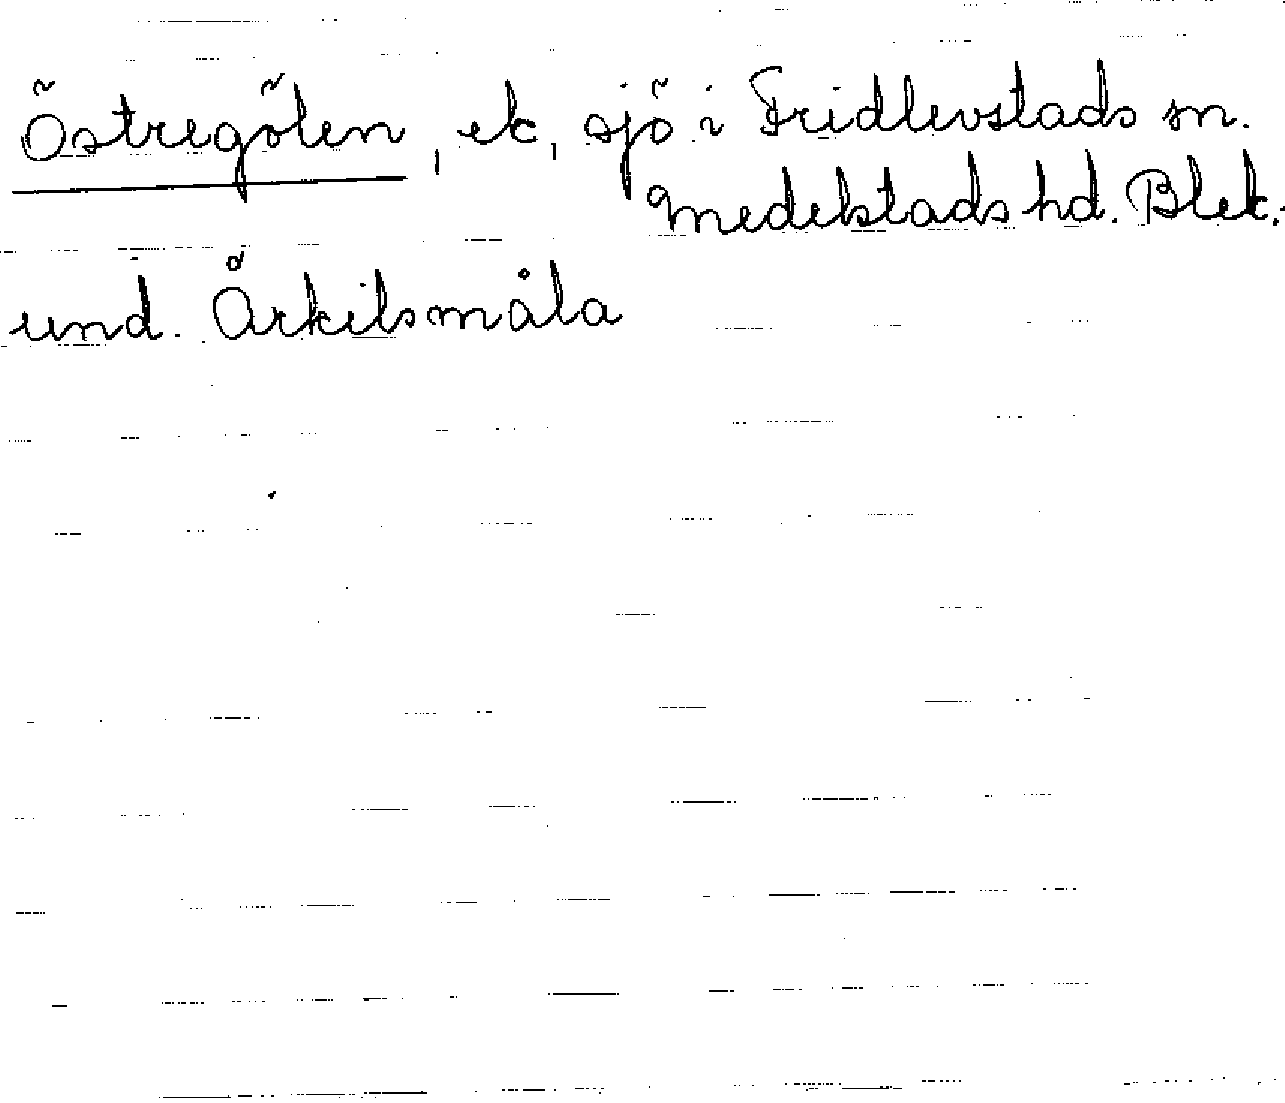 Östregölen, ek, sjö i Fridlevstads sn.
Medelstads hd. Blek.
und. Årkilsmåla